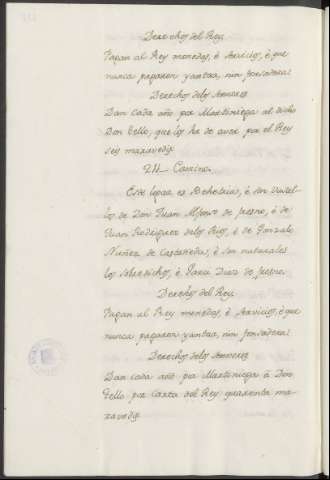 Derechos del Rey.
Pagan al Rey monedas, è servicios, è que
nunca pagaron yantar, nin fonsadera.
Derechos delos Señores
Dan cada año por Martiniega al dicho
Don Tello, que los ha de aver por el Rey
seys maravedis
Camino.
Este logar es Behetria, è son vasallos
de Don Juan Alfonso de fresno, è de
Juan Rodriguez delos Rios, è de Gonzalo
Nuñez de Castañeda, è son naturales
los sobredichos, è Garci Diaz de fresno.
Derechos del Rey.
Pagan al Rey monedas, è servicios, è que
nunca pagaron yantar, nin fonsadera.
Derechos delos Señores
Dan cada año por Martiniega à Don
Tello por carta del Rey quarenta ma-
ravedis